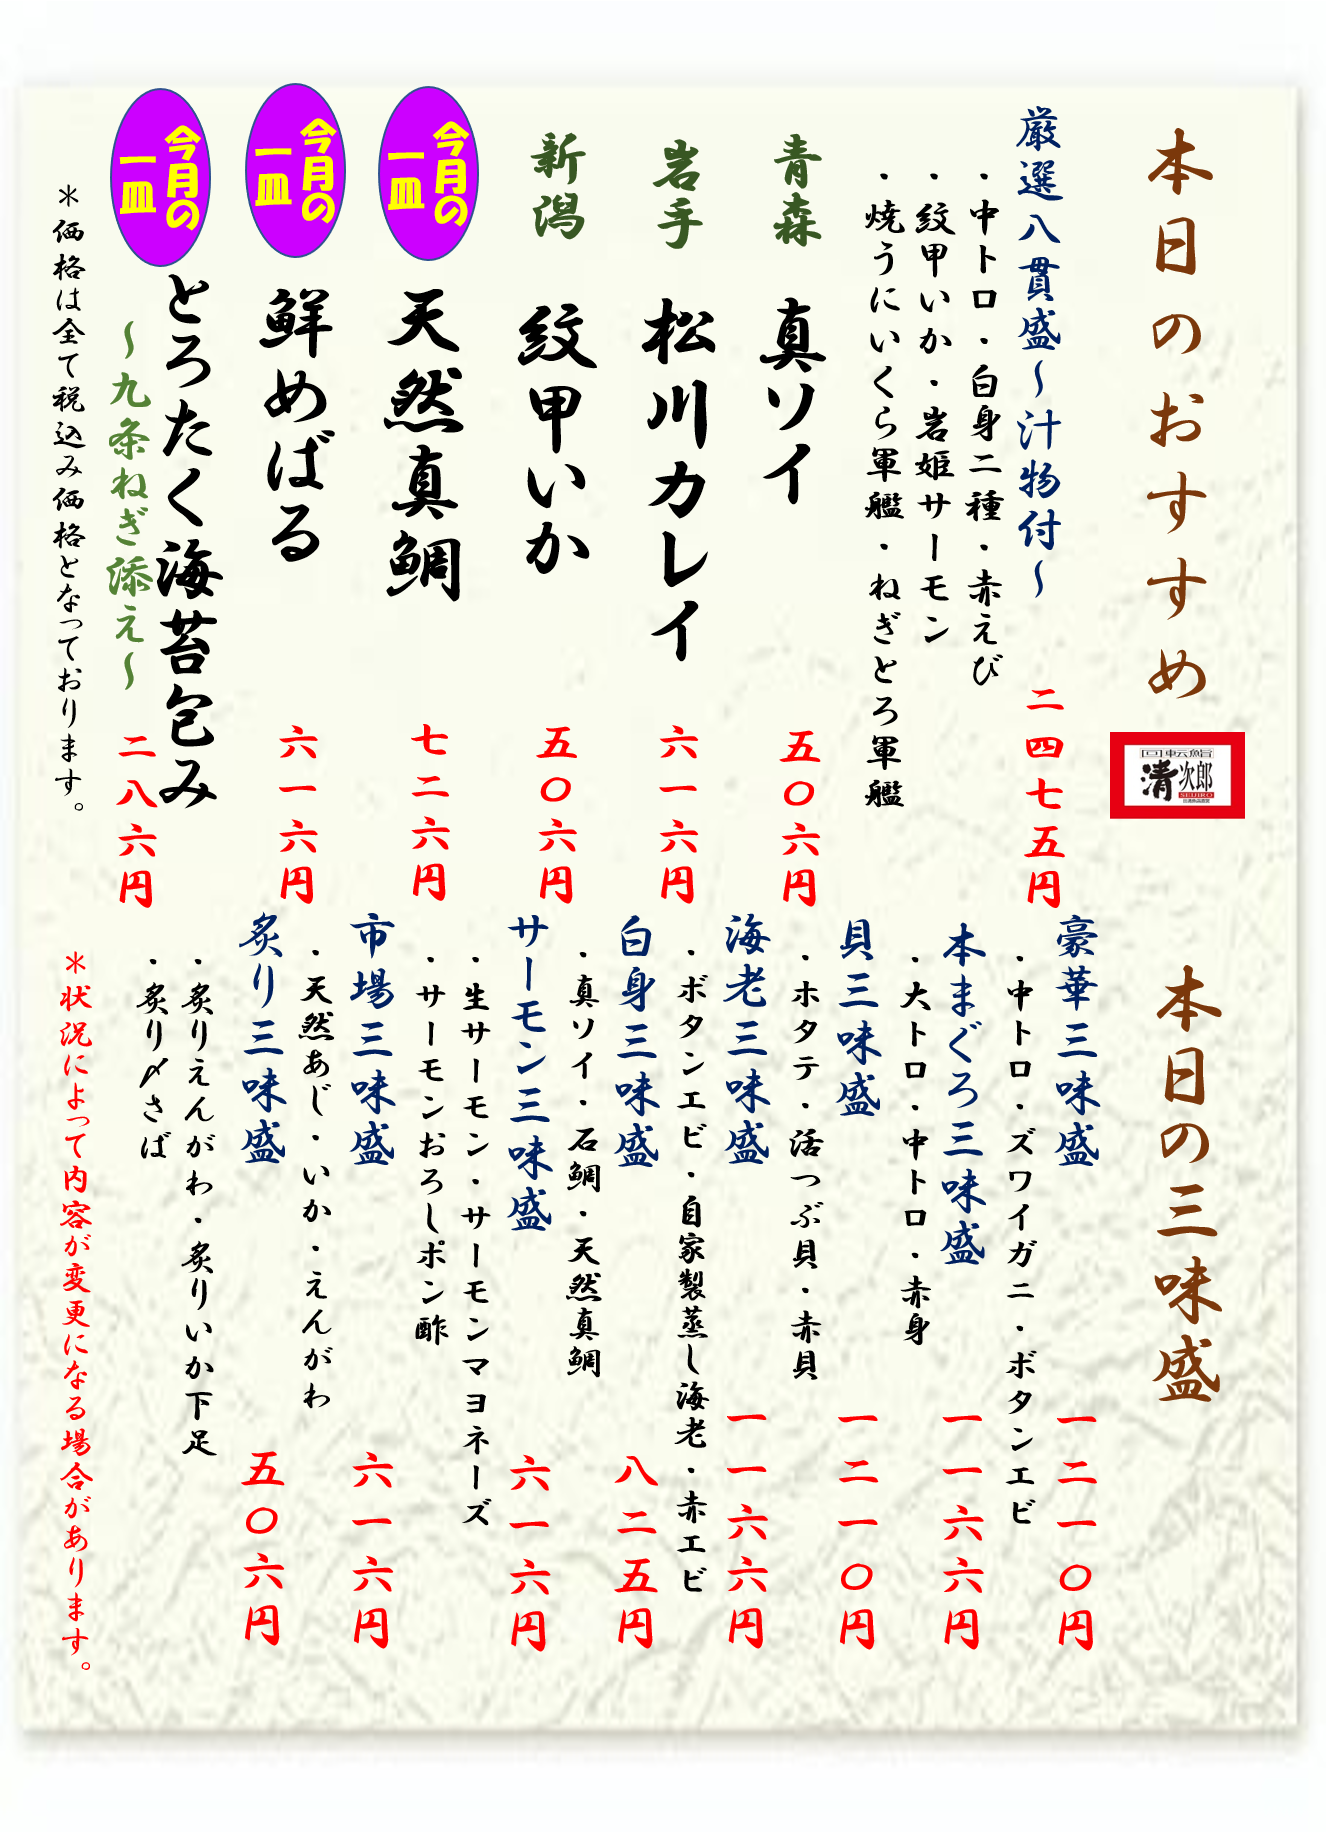 本日のおすすめ
回転鮨
清次郎
SEIJIRO
厳選八貫盛～汁物付～
二四七五円
・中トロ・白身二種・赤えび
・紋甲いか・岩姫サーモン
・焼うにいくら軍艦・ねぎとろ軍艦
青森 真ソイ 五〇六円
岩手 松川カレイ 六一六円
新潟 紋甲いか 五〇六円
今月の
一皿
天然真鯛 七二六円
今月の
一皿
鮮めばる 六一六円
今月の
一皿
とろたく海苔包み
～九条ねぎ添え～ 二八六円
＊価格は全て税込み価格となっております。
本日の三味盛
豪華三味盛 一二一〇円
・中トロ・ズワイガニ・ボタンエビ
本まぐろ三味盛 一一六六円
・大トロ・中トロ・赤身
貝三味盛 一二一〇円
・ホタテ・活つぶ貝・赤貝
海老三味盛 一一六六円
・ボタンエビ・自家製蒸し海老・赤エビ
白身三味盛 八二五円
・真ソイ・石鯛・天然真鯛
サーモン三味盛 六一六円
・生サーモン・サーモンマヨネーズ
・サーモンおろしポン酢
市場三味盛 六一六円
・天然あじ・いか・えんがわ
炙り三味盛 五〇六円
・炙りえんがわ・炙りいか下足
・炙り〆さば
＊状況によって内容が変更になる場合があります。